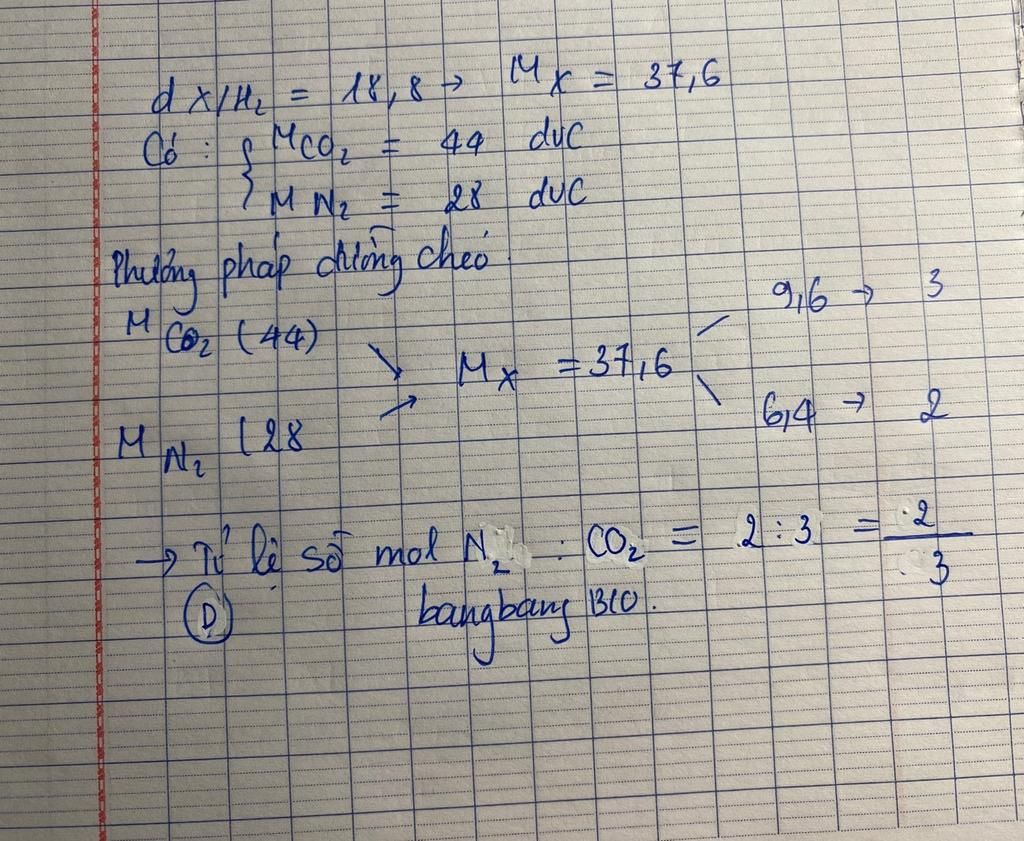 d X/H₂ = 18,8 → M X = 37,6
Có : { M CO₂ = 44 đvC
M N₂ = 28 đvC
Phương pháp đường chéo
M CO₂ (44) 9,6 → 3
↘ ↗ M X = 37,6
M N₂ (28 6,4 → 2
→ Tỉ lệ số mol N₂ : CO₂ = 2 : 3 = 2/3
D bangbang BIO.